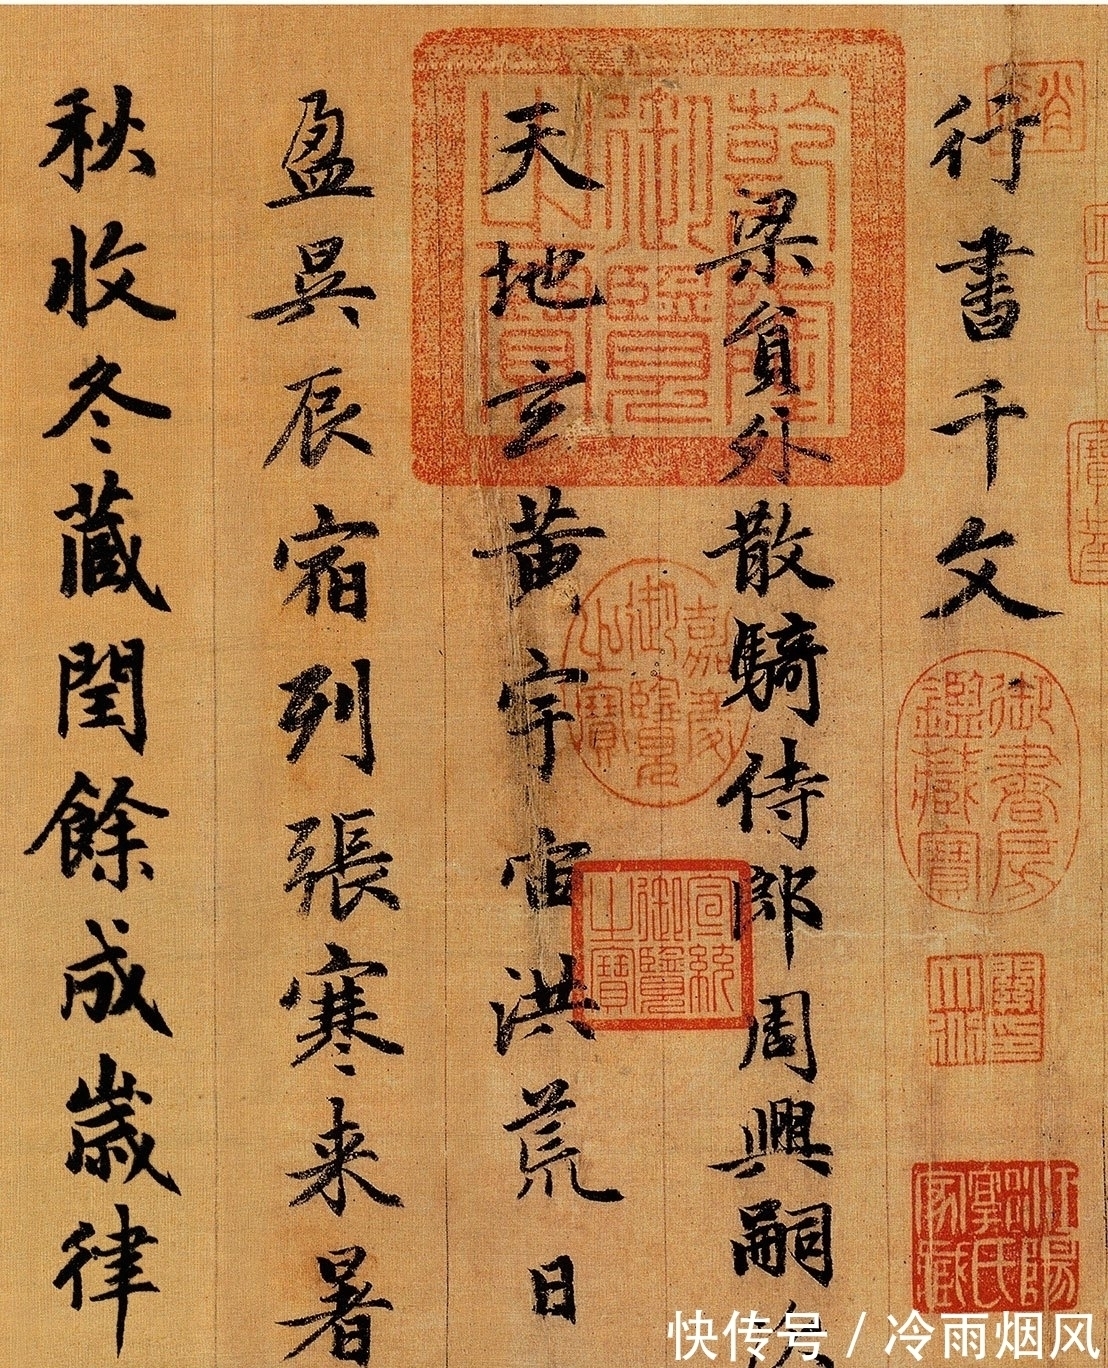 行書千文
梁貟外散騎侍郎周興嗣次
天地玄黄宇宙洪荒日
盈昃辰宿列張寒来暑
秋收冬藏閏餘成歲律
乾隆御覽之寶
嘉慶御覽之寶
宣統御覽之寶
御書房鑑藏寶
快传号 / 冷雨烟风